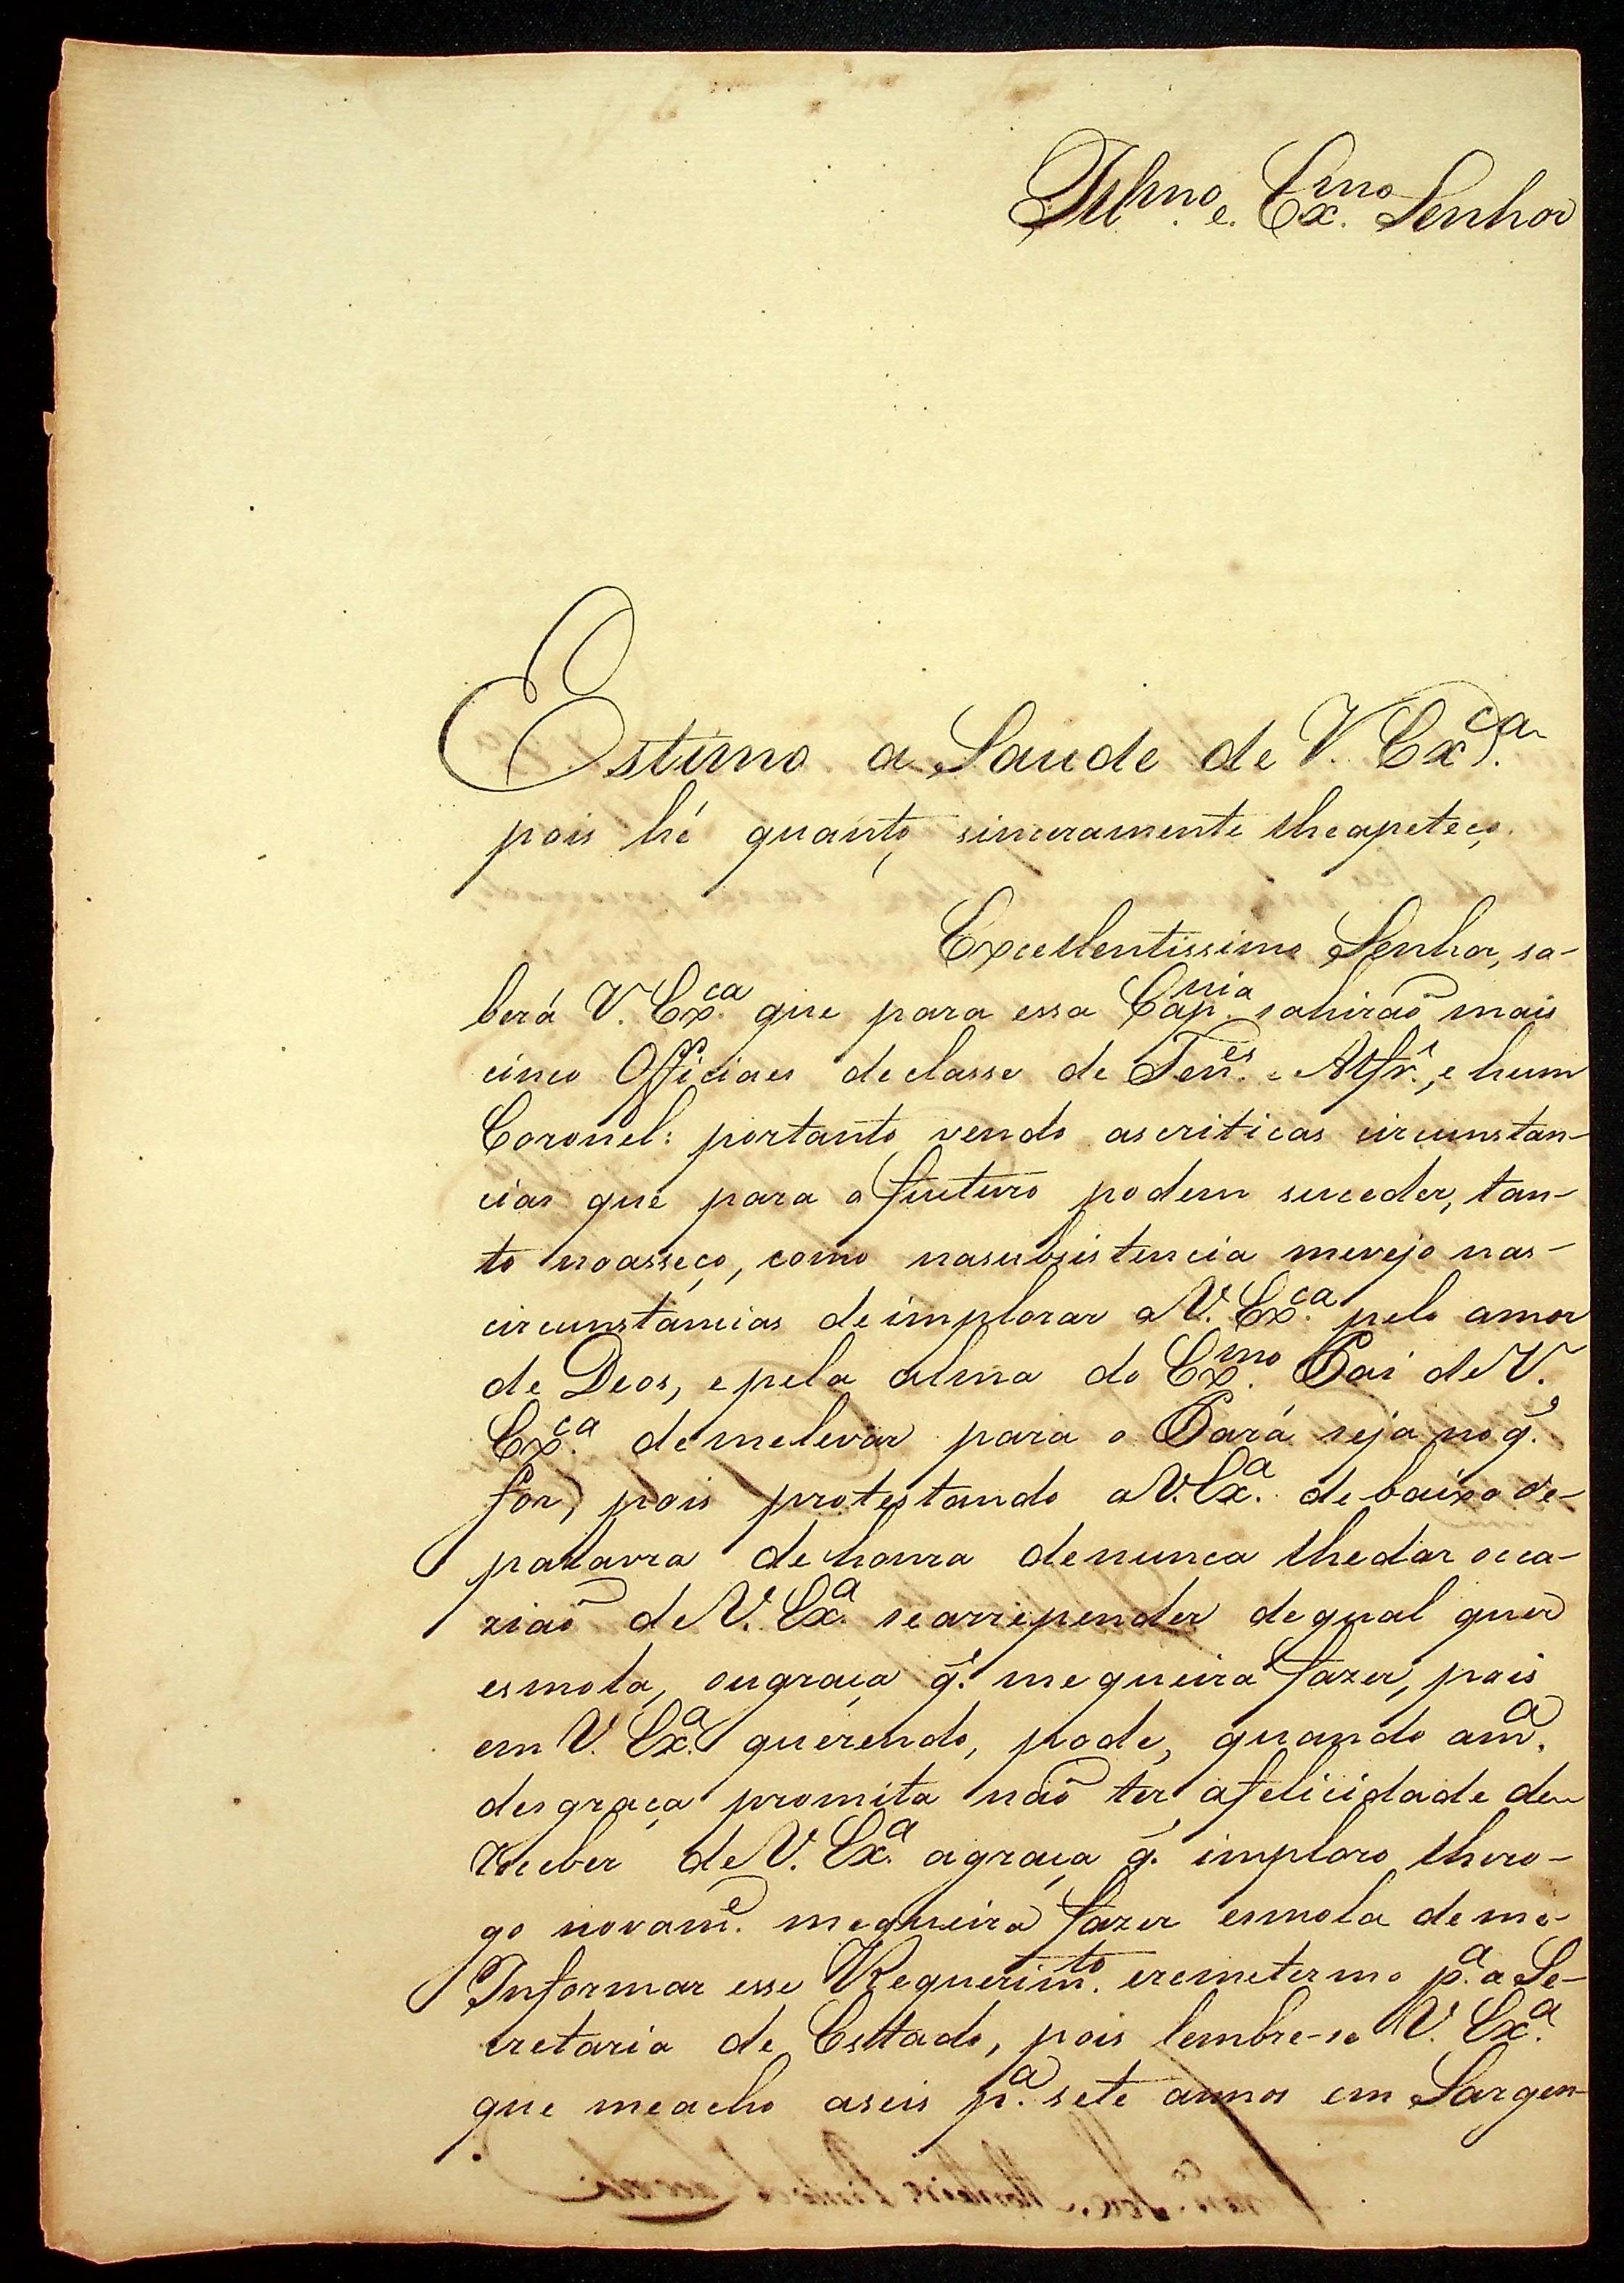 Illmo. e. Exmo. Senhor
Estimo a Saude de V. Exca.
pois hé quanto, sinceramente lheapeteço,
Excellentissimo Senhor, sa-
berá V. Exca. que para essa Capnia. sahiraõ mais
cinco Officiaes declasse de Tenes. e Alfr.s, e hum
Coronel: portanto vendo ascriticas circunstan-
cias que para o futuro podem suceder, tan-
to noasseço, como nasubsistencia mevejo nas-
circunstancias deimplorar a V. Exca. pelo amor
de Deos, epela alma do Exmo. Pai de V.
Exca. demelevar para o Pará seja no q̃.
for, pois protestando a V. Exa. debaixo de-
palavra dehonra denunca lhedar occa-
ziaõ de V. Exa. searrepender dequal quer
esmola, ougraça q̃. mequeira fazer, pois
em V. Exa. querendo, pode, quando am.a
desgraça promita naõ ter afelicidade de
receber de V. Exa. agraça q̃. imploro lhero-
go novame. mequeira fazer esmola deme-
Informar esse Requerimto. eremetermo pa. a Se-
cretaria de Estado, pois lembre-se V. Exa.
que meacho aseis pa. sete annos em Sargen-